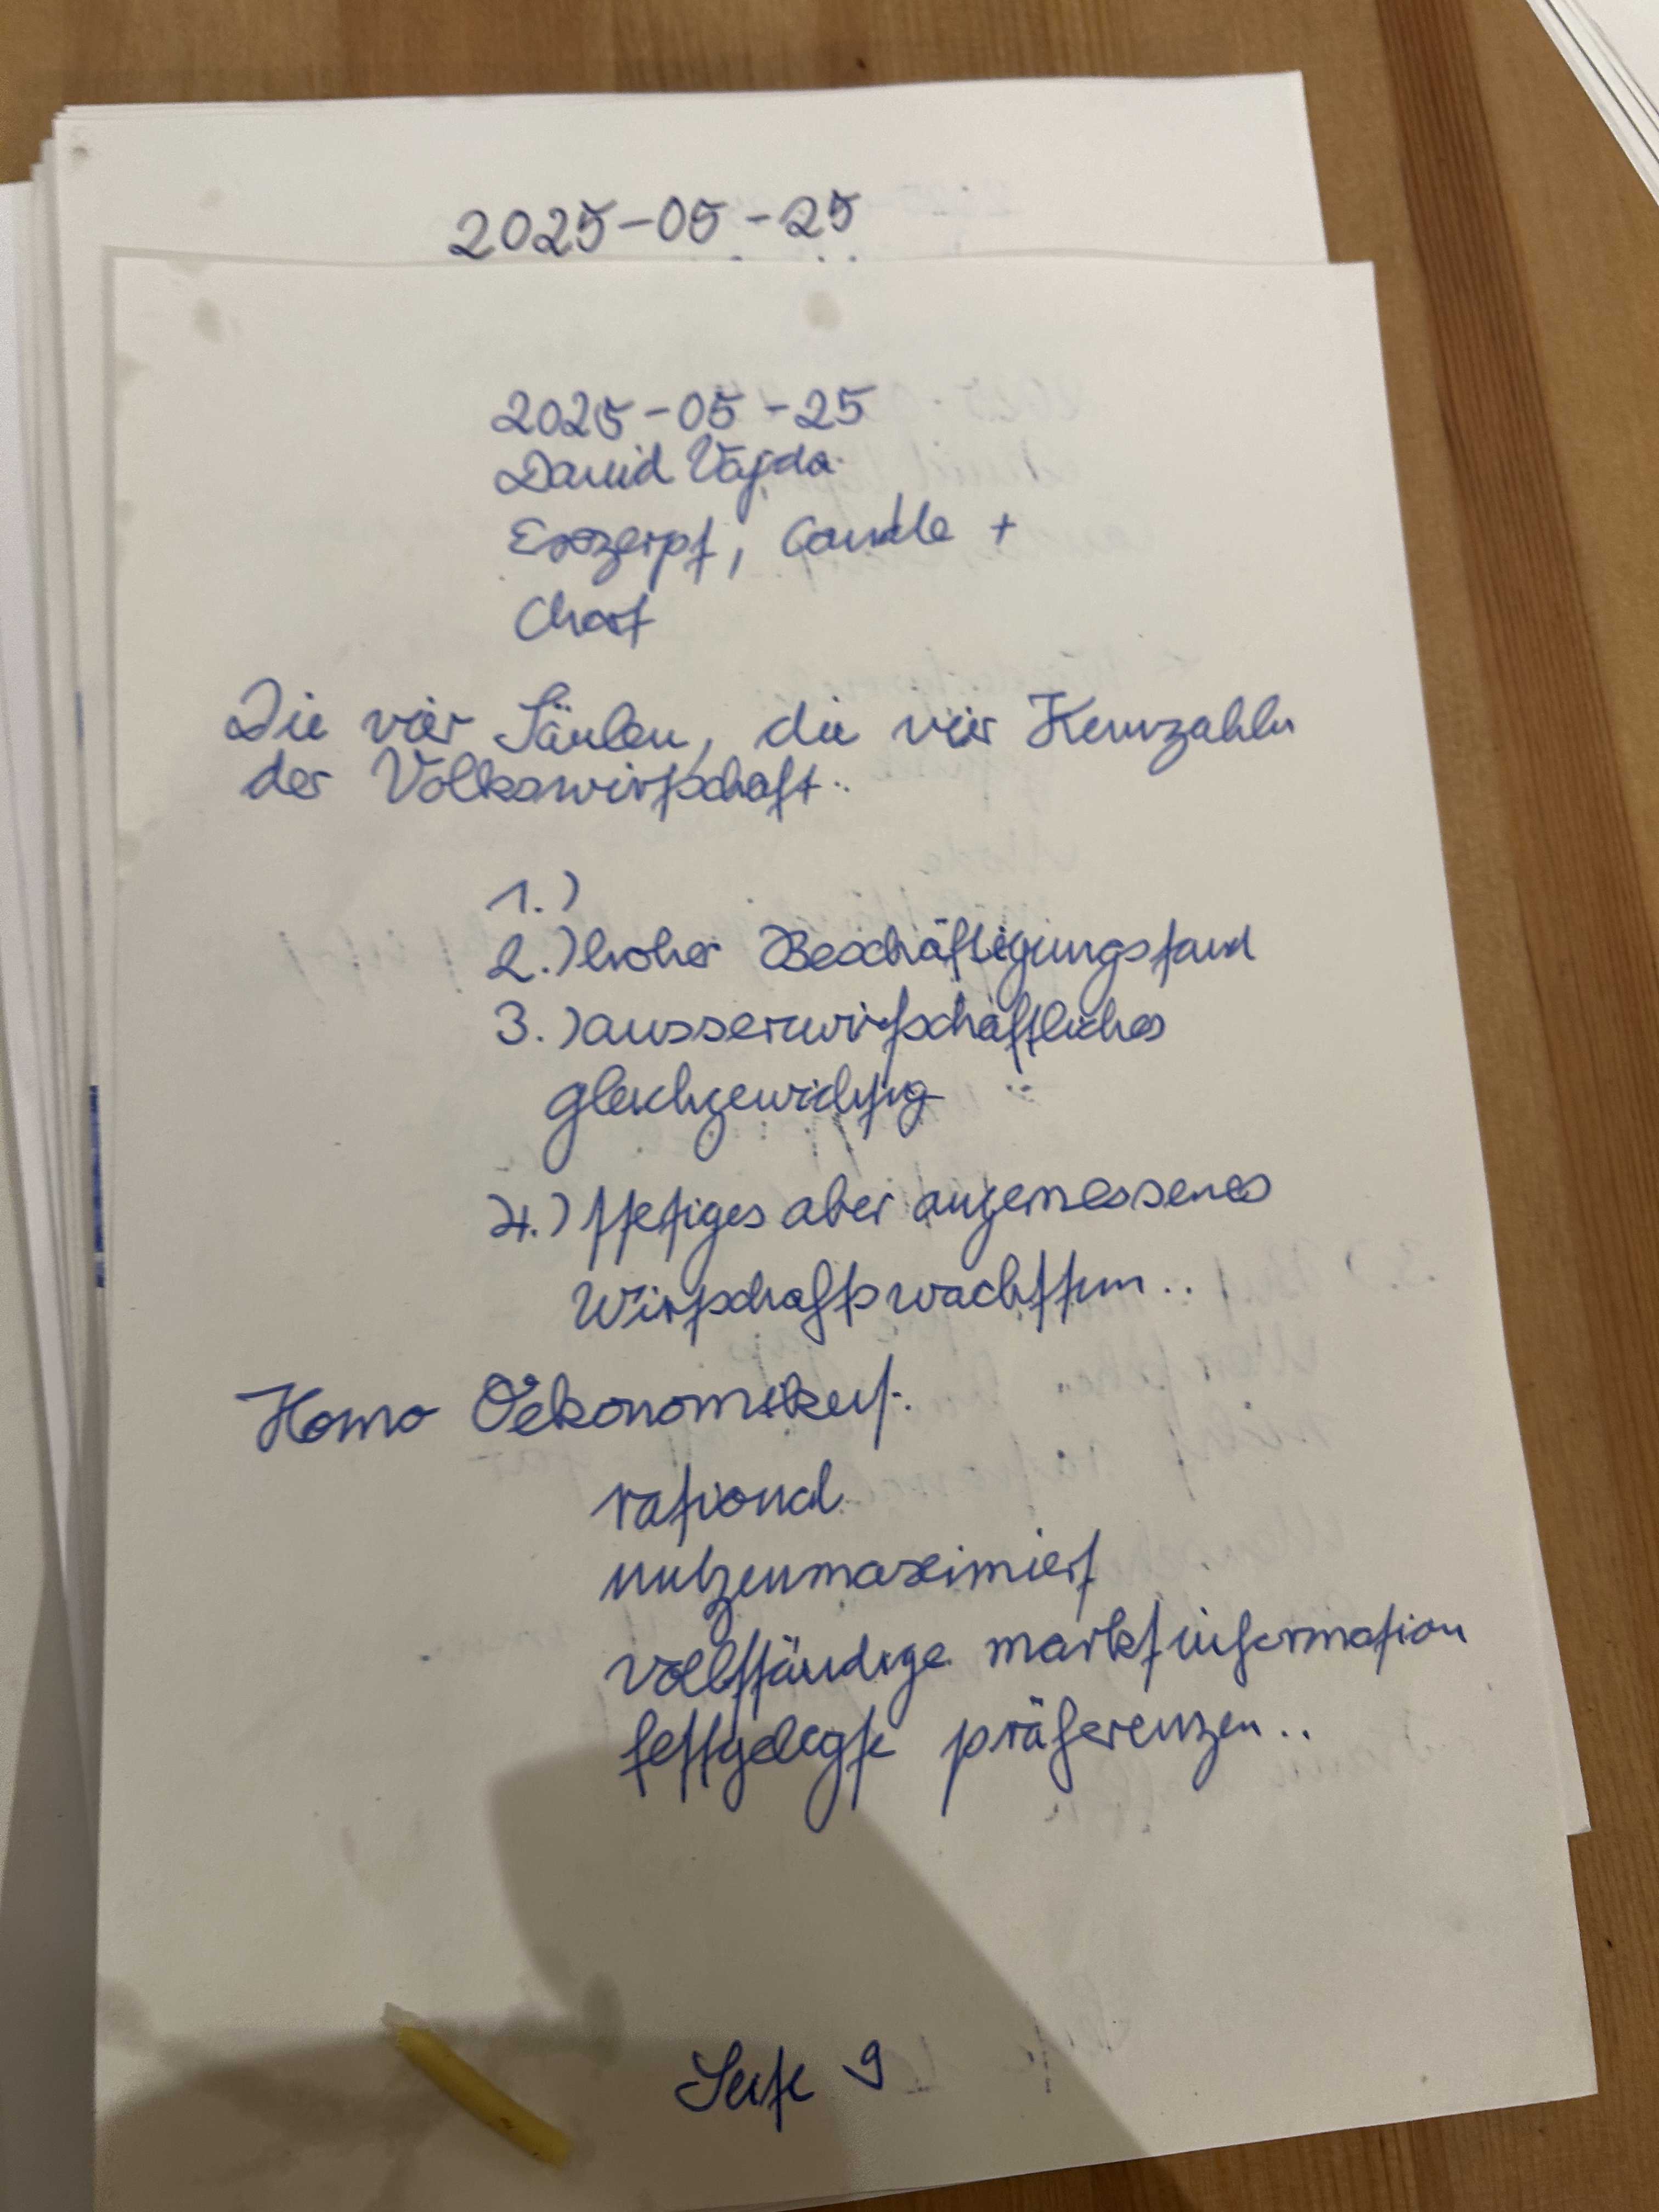 2025-05-25
2025-05-25
David Vajda
Exzerpt, Candle +
Chart
Die vier Säulen, die vier Kennzahlen
der Volkswirtschaft..
1.)
2.) hoher Beschäftigungstand
3.) ausserwirtschaftliches
gleichgewichtig
4.) stetiges aber angemessenes
Wirtschaftswachstum..
Homo Oekonomikus:
rational
nutzenmaximiert
vollständige marktinformation
festgelegte präferenzen..
Seite 9